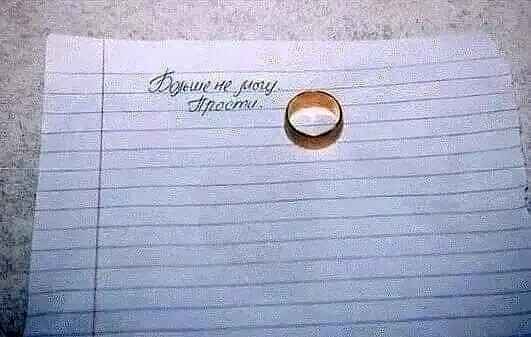 Больше не могу.
Прости.